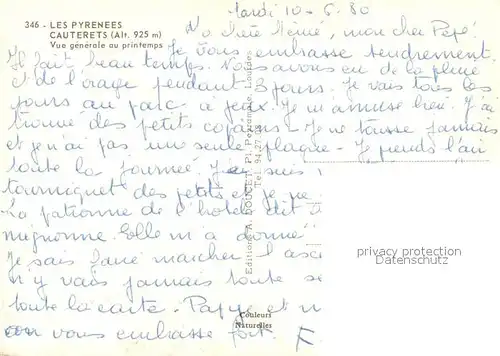 346 - LES PYRENEES
CAUTERETS (Alt. 925 m)
Vue générale au printemps
Mardi 10-6.80
Ma chère Mémé, mon cher Pépé
Je vous embrasse tendrement.
Il fait beau temps. Nous avons eu de la pluie
et de l'orage pendant 3 jours. Je vais tous les
jours au parc à jeux. Je m'amuse bien. J'ai
trouvé des petits copains - Je ne tousse jamais
et je n'ai pas une seule plaque - Je prends l'air
toute la journée. J'ai suis
tourniquet des petits et je ne
La patronne de l'hôtel dit
mignonne. Elle m'a donné
Je sais faire marcher l'asc
n'y vais jamais toute se
toute la carte. Papa et m
vous embrasse fort. F
Editions A. DOUCET, Pl. Peyramale, Lourdes
Tel. 94.27.
Couleurs
Naturelles
privacy protection
DanskFoto.com